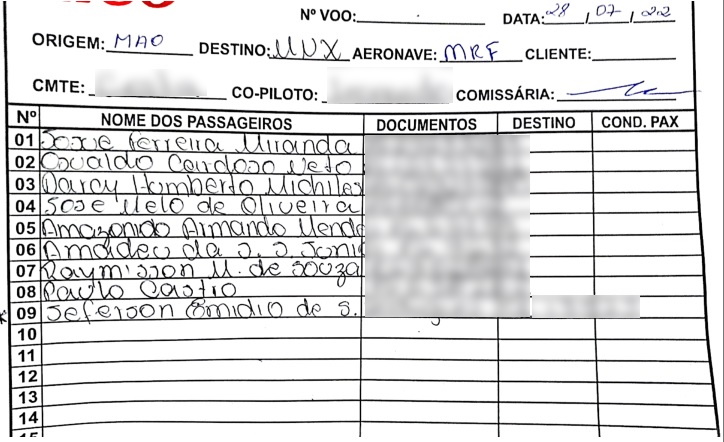 Nº VOO: DATA: 28 / 07 / 22
ORIGEM: MAO DESTINO: UNX AERONAVE: MRF CLIENTE:
CMTE: CO-PILOTO: COMISSÁRIA:
Nº NOME DOS PASSAGEIROS DOCUMENTOS DESTINO COND. PAX
01 Josue Ferreira Miranda
02 Osvaldo Cardoso Neto
03 Darcy Humberto Michiles
04 Jose Melo de Oliveira
05 Amazonido Armando Mendo
06 Amadeu da S. S. Juni
07 Raymisson M. de Souza
08 Paulo Castro
09 Jeferson Emidio de S.
10
11
12
13
14